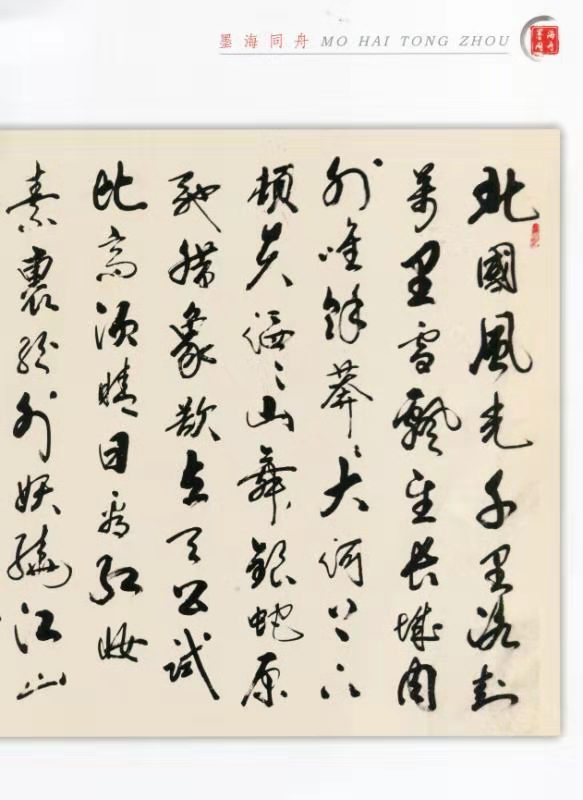 墨海同舟 MO HAI TONG ZHOU
北國風光千里冰封
萬里雪飘望长城内
外唯餘莽〻大河上下
頓失滔〻山舞銀蛇原
驰腊象欲与天公試
比高须晴日看红妝
素裹纷外妖娆江山